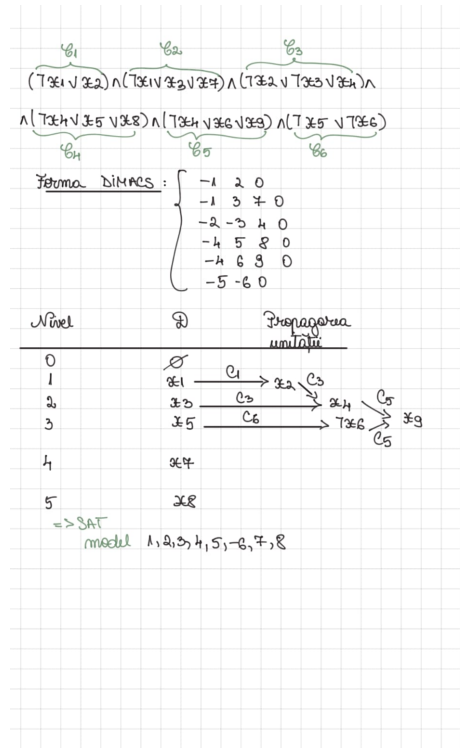 C1 C2 C3
(7x1Vx2)∧(7x1Vx3Vx7)∧(7x2V7x3Vx4)∧
∧(7x4Vx5Vx8)∧(7x4Vx6Vx9)∧(7x5V7x6)
C4 C5 C6
Forma DiMACS:
-1 2 0
-1 3 7 0
-2 -3 4 0
-4 5 8 0
-4 6 9 0
-5 -6 0
Nivel D Propagarea
unitații
0 ∅
1 x1 C1 x2 C3
2 x3 C3 x4 C5
3 x5 C6 7x6 C5 x9
4 x7
5 x8
=> SAT
model 1,2,3,4,5,-6,7,8